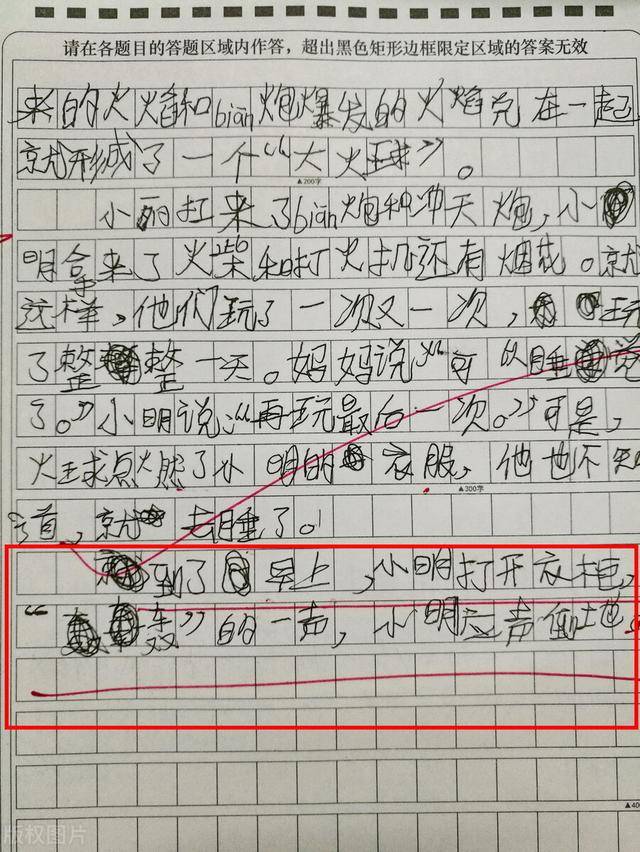 请在各题目的答题区域内作答，超出黑色矩形边框限定区域的答案无效
来的火焰和bian炮爆发的火焰克在一起
就形成了一个“大火球”。
▲200字
小丽扛来了bian炮和冲天炮，小
明拿来了火柴和打火机还有烟花。就
这样，他们玩了一次又一次，玩
了整整一天。妈妈说“可以睡觉
了。”小明说“再玩最后一次。”可是，
火球点燃了小明的衣服，他也不知
▲300字
道，就去睡了。
到了早上，小明打开衣柜，
“轰”的一声，小明应声倒地
▲40
版权图片